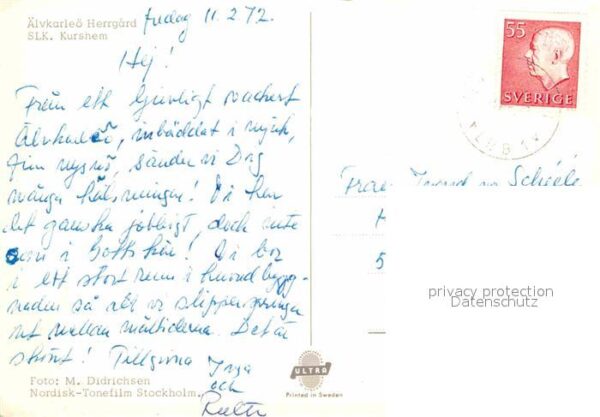 Älvkarleö Herrgård
SLK. Kurshem
fredag 11.2.72.
Hej!
Från ett ljuvligt vackert
Älvkarleö, inbäddat i mjuk,
fin nysnö, sänder vi Dig
många hälsningar! Vi har
det ganska jobbigt, dock inte
som i Gottskär! Vi bor
i ett stort rum i huvudbygg-
naden så att vi slipper springa
ut mellan måltiderna. Det är
skönt! Tillgivna Inga
och
Foto: M. Didrichsen
Nordisk-Tonefilm Stockholm.
ULTRA
Printed in Sweden
55
SVERIGE
Scheele
5
privacy protection
Datenschutz